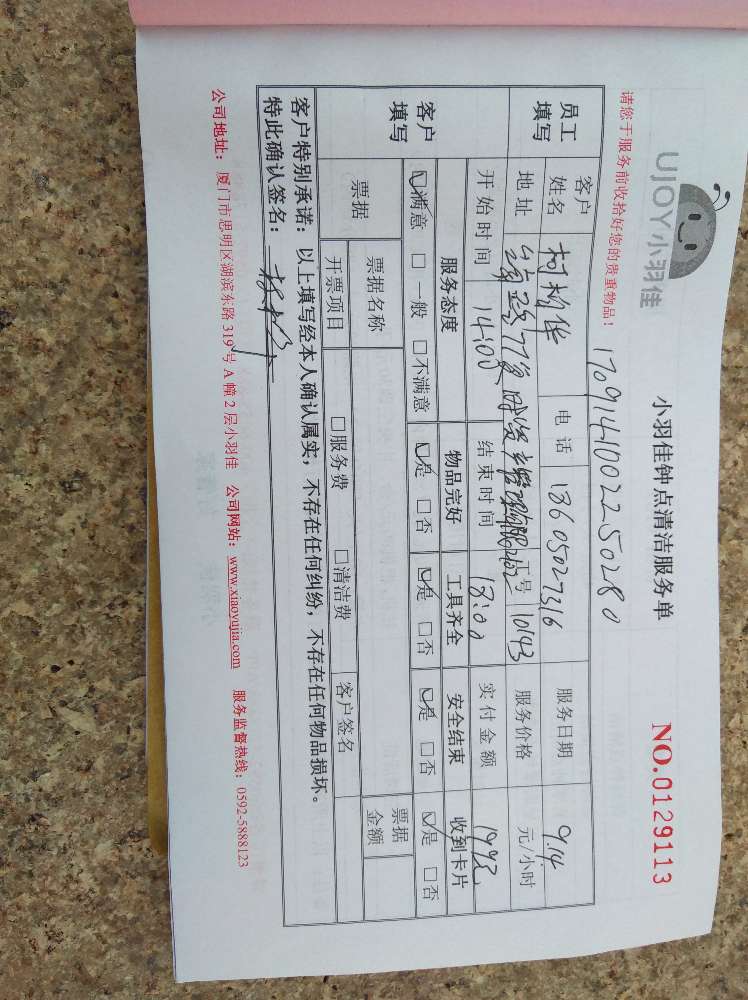 UJOY小羽佳
小羽佳钟点清洁服务单
NO.0129113
请您于服务前收拾好您的贵重物品！
1709141002250280
员工填写 客户姓名 柯 华 电话 13605027316 服务日期 9.14
地址 77 号 202 工号 10193 服务价格 元/小时
开始时间 14:00 结束时间 18:00 实付金额 199
客户填写 服务态度 物品完好 工具齐全 安全结束 收到卡片
☑满意 □一般 □不满意 ☑是 □否 ☑是 □否 ☑是 □否 ☑是 □否
票据 票据名称 票据金额
开票项目 □服务费 □清洁费 客户签名
客户特别承诺：以上填写经本人确认属实，不存在任何纠纷，不存在任何物品损坏。
特此确认签名：
公司地址：厦门市思明区湖滨东路 319 号 A 幢 2 层小羽佳 公司网站：www.xiaoyujia.com 服务监督热线：0592-5888123